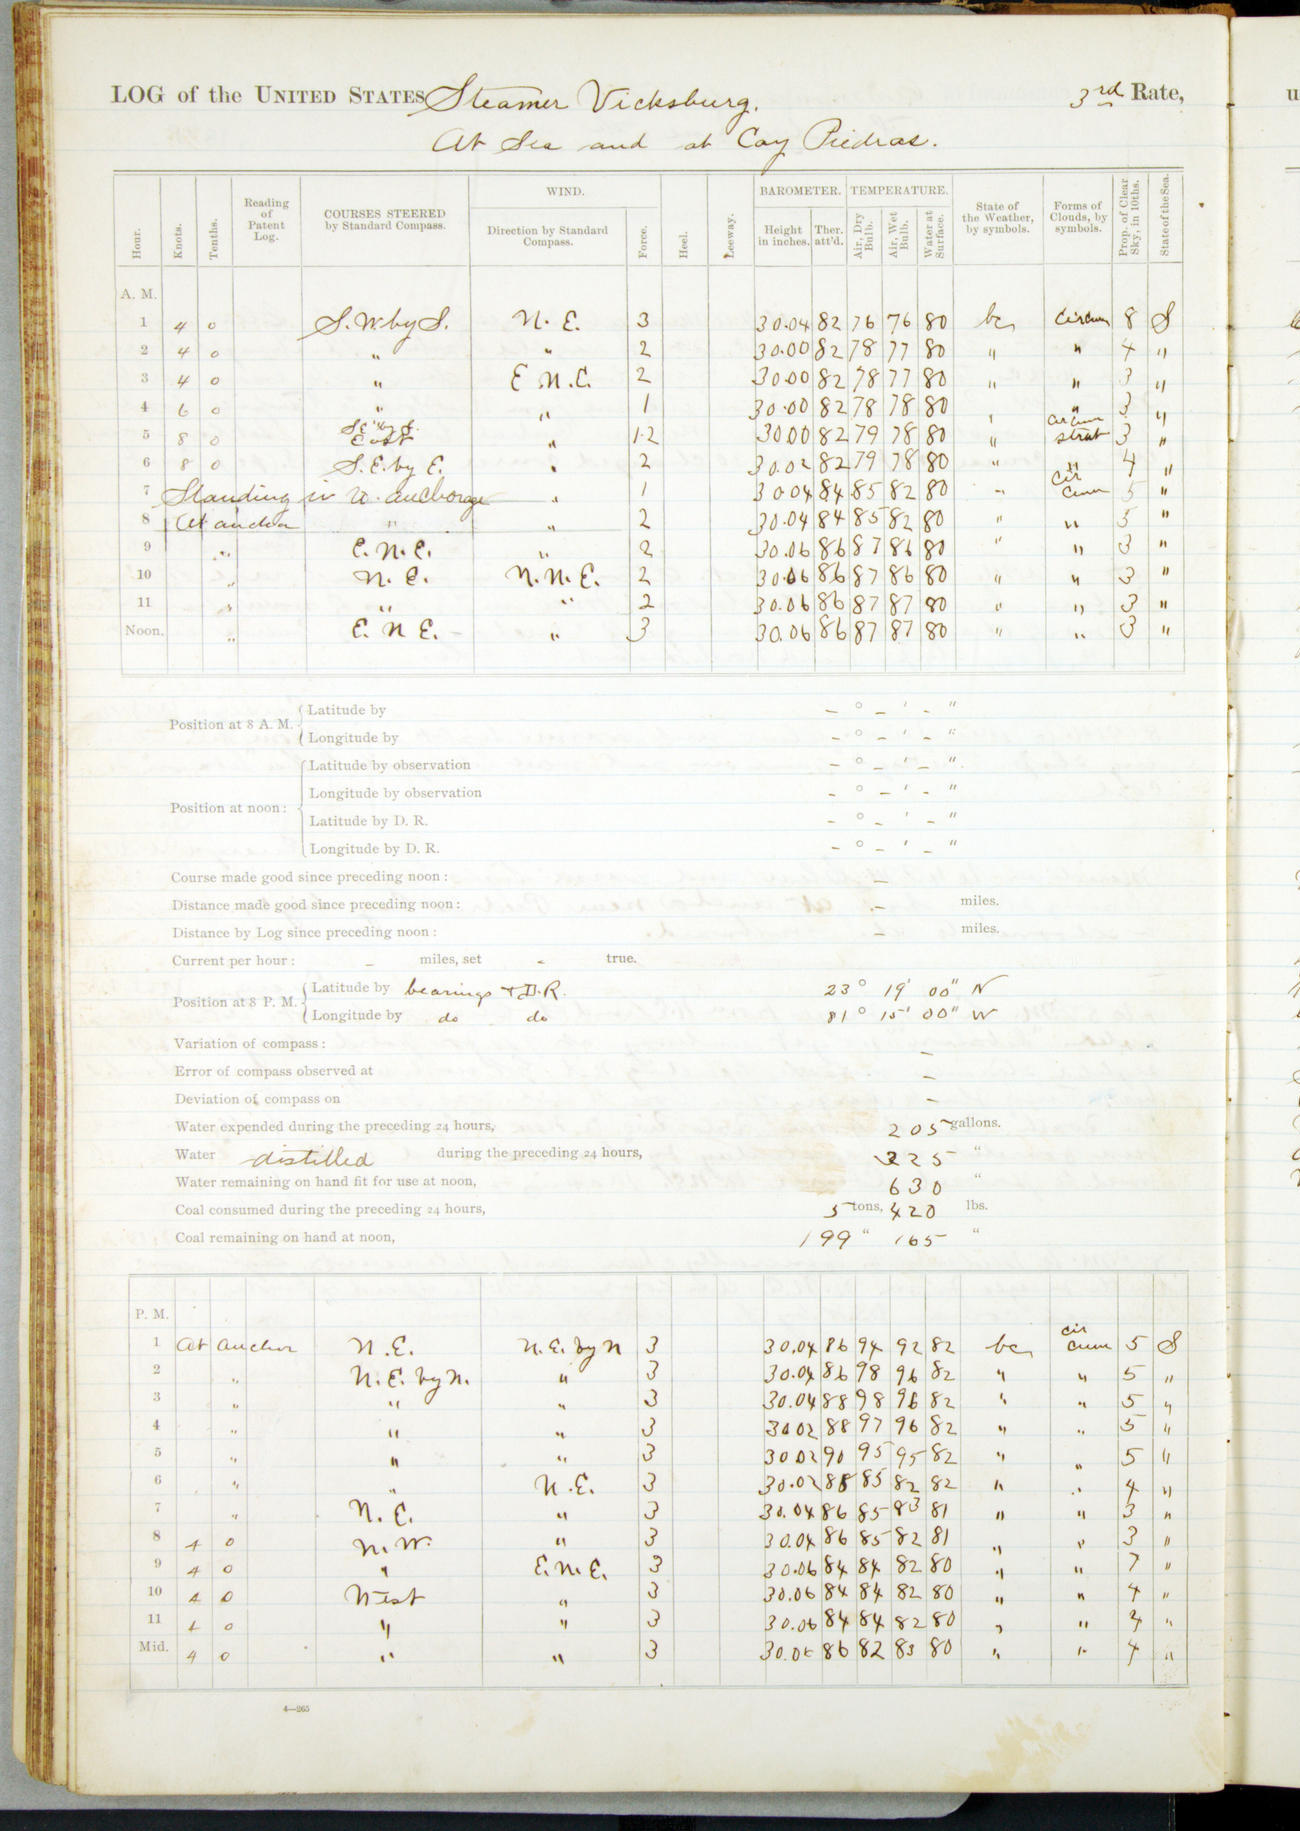 LOG of the UNITED STATES Steamer Vicksburg. 3rd Rate,
At Sea and at Cay Piedras.
Hour. Knots. Tenths. Reading of Patent Log. COURSES STEERED by Standard Compass. WIND. Direction by Standard Compass. Force. Heel. Leeway. BAROMETER. Height in inches. Ther. att'd. TEMPERATURE. Air, Dry Bulb. Air, Wet Bulb. Water at Surface. State of the Weather, by symbols. Forms of Clouds, by symbols. Prop. of Clear Sky, in 10ths. State of the Sea.
A. M.
1 4 0 S.W. by S. N. E. 3 30.04 82 76 76 80 bc cir cum 8 S
2 4 0 " " 2 30.00 82 78 77 80 " " 4 "
3 4 0 " E N.E. 2 30.00 82 78 77 80 " " 3 "
4 6 0 " " 1 30.00 82 78 78 80 " " 3 "
5 8 0 S.E. by S. East " 1-2 30.00 82 79 78 80 " cir cum strat 3 "
6 8 0 S.E. by E. " 2 30.02 82 79 78 80 " " 4 "
7 Standing in to anchorage " 1 30.04 84 85 82 80 " cir cum 5 "
8 At anchor " " 2 30.04 84 85 82 80 " " 3 "
9 " E.N.E. " 2 30.06 86 87 86 80 " " 3 "
10 " N.E. N.N.E. 2 30.06 86 87 86 80 " " 3 "
11 " " " 2 30.06 86 87 87 80 " " 3 "
Noon. " E. N E. " 3 30.06 86 87 87 80 " " 3 "
Position at 8 A. M. Latitude by – ° – ' – "
Longitude by – ° – ' – "
Position at noon: Latitude by observation – ° – ' – "
Longitude by observation – ° – ' – "
Latitude by D. R. – ° – ' – "
Longitude by D. R. – ° – ' – "
Course made good since preceding noon: –
Distance made good since preceding noon: – miles.
Distance by Log since preceding noon: – miles.
Current per hour: – miles, set – true.
Position at 8 P. M. Latitude by bearings + D.R. 23° 19' 00" N
Longitude by do do 81° 15' 00" W
Variation of compass: –
Error of compass observed at –
Deviation of compass on –
Water expended during the preceding 24 hours, 205 gallons.
Water distilled during the preceding 24 hours, 225 "
Water remaining on hand fit for use at noon, 630 "
Coal consumed during the preceding 24 hours, 5 tons, 420 lbs.
Coal remaining on hand at noon, 199 " 165 "
P. M.
1 At anchor N.E. N.E. by N 3 30.04 86 94 92 82 bc cir cum 5 S
2 " N.E. by N. " 3 30.04 86 98 96 82 " " 5 "
3 " " " 3 30.04 88 98 96 82 " " 5 "
4 " " " 3 30.02 88 97 96 82 " " 5 "
5 " " " 3 30.02 90 95 95 82 " " 5 "
6 " " N.E. 3 30.02 88 85 82 82 " " 4 "
7 " N.E. " 3 30.04 86 85 83 81 " " 3 "
8 4 0 N.W. " 3 30.04 86 85 82 81 " " 3 "
9 4 0 " E.N.E. 3 30.06 84 84 82 80 " " 7 "
10 4 0 West " 3 30.06 84 84 82 80 " " 4 "
11 4 0 " " 3 30.06 84 84 82 80 " " "
Mid. 4 0 " " 3 30.06 86 82 83 80 " " 4 "
4—265